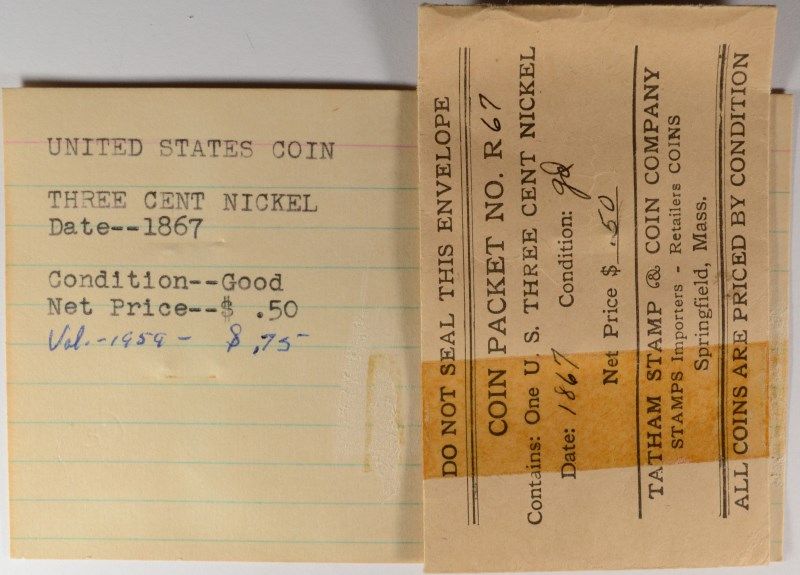 UNITED STATES COIN
THREE CENT NICKEL
Date--1867
Condition--Good
Net Price--$ .50
Val.-1959- $.75
DO NOT SEAL THIS ENVELOPE
COIN PACKET NO. R 67
Contains: One U. S. THREE CENT NICKEL
Date: 1867 Condition: gd
Net Price $ .50
TATHAM STAMP & COIN COMPANY
STAMPS Importers - Retailers COINS
Springfield, Mass.
ALL COINS ARE PRICED BY CONDITION